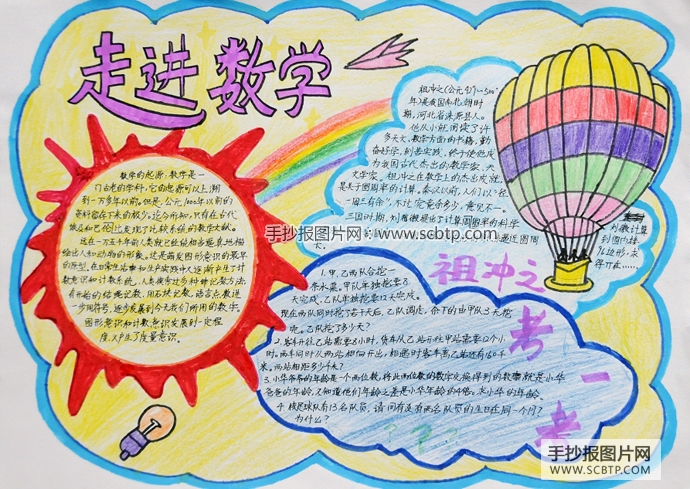 走进数学
数学的起源:数学是一
门古老的学科,它的起源可以上溯
到一万多年以前。但是,公元1000年以前的
资料留存下来的极少。迄今所知,只有在古代
埃及和巴比伦发现了比较系统的数学文献。
远在一万五千年前人类就已经能相当逼真地描
绘出人和动物的形象。这是萌发图形意识的最早
的证据。在日常生活中和生产实践中又逐渐产生了计
数意识和计数系统,人类摸索过多种记数方法
有开始的结绳记数,用石块记数,语言点数进
一步用符号,逐步发展到今天我们所用的数字。
图形意识和计数意识发展到一定程
度,又产生了度量意识。
祖冲之(公元429-500
年)是我国南北朝时
期,河北省涞源县人。
他从小就阅读了许
多天文、数学方面的书籍,勤
奋好学,刻苦实践,终于使他成
为我国古代杰出的数学家、天
文学家。祖冲之在数学上的杰出成就,
是关于圆周率的计算。秦汉以前,人们以"径
一周三"
三国时期,刘徽提出了计算圆周率的科学
逼近圆周
刘徽计算
到圆内接
96边形,求
得π=
祖冲之
考一考
1、甲、乙两队合挖一
条水渠,甲队单独挖要8
天完成,乙队单独挖要12天完成。
现在两队同时挖了若干天后,乙队调走,余下的由甲队3天挖
完。乙队挖了多少天?
2.客车开往乙站需要8小时,货车从乙站开往甲站需要12个小
时。两车同时从两站相向开出,相遇时客车离乙站还有150千
米,两站相距多少千米?
3.小华爷爷的年龄是一个两位数,将此两位数的数字交换得到的数就是小华
爸爸的年龄,又知道他们年龄之差是小华年龄的4倍。求小华的年龄。
4.校足球队有13名队员,请问有没有两名队员的生日在同一个月?
为什么?
手抄报图片网-www.scbtp.com
手抄报图片网
WWW.SCBTP.COM